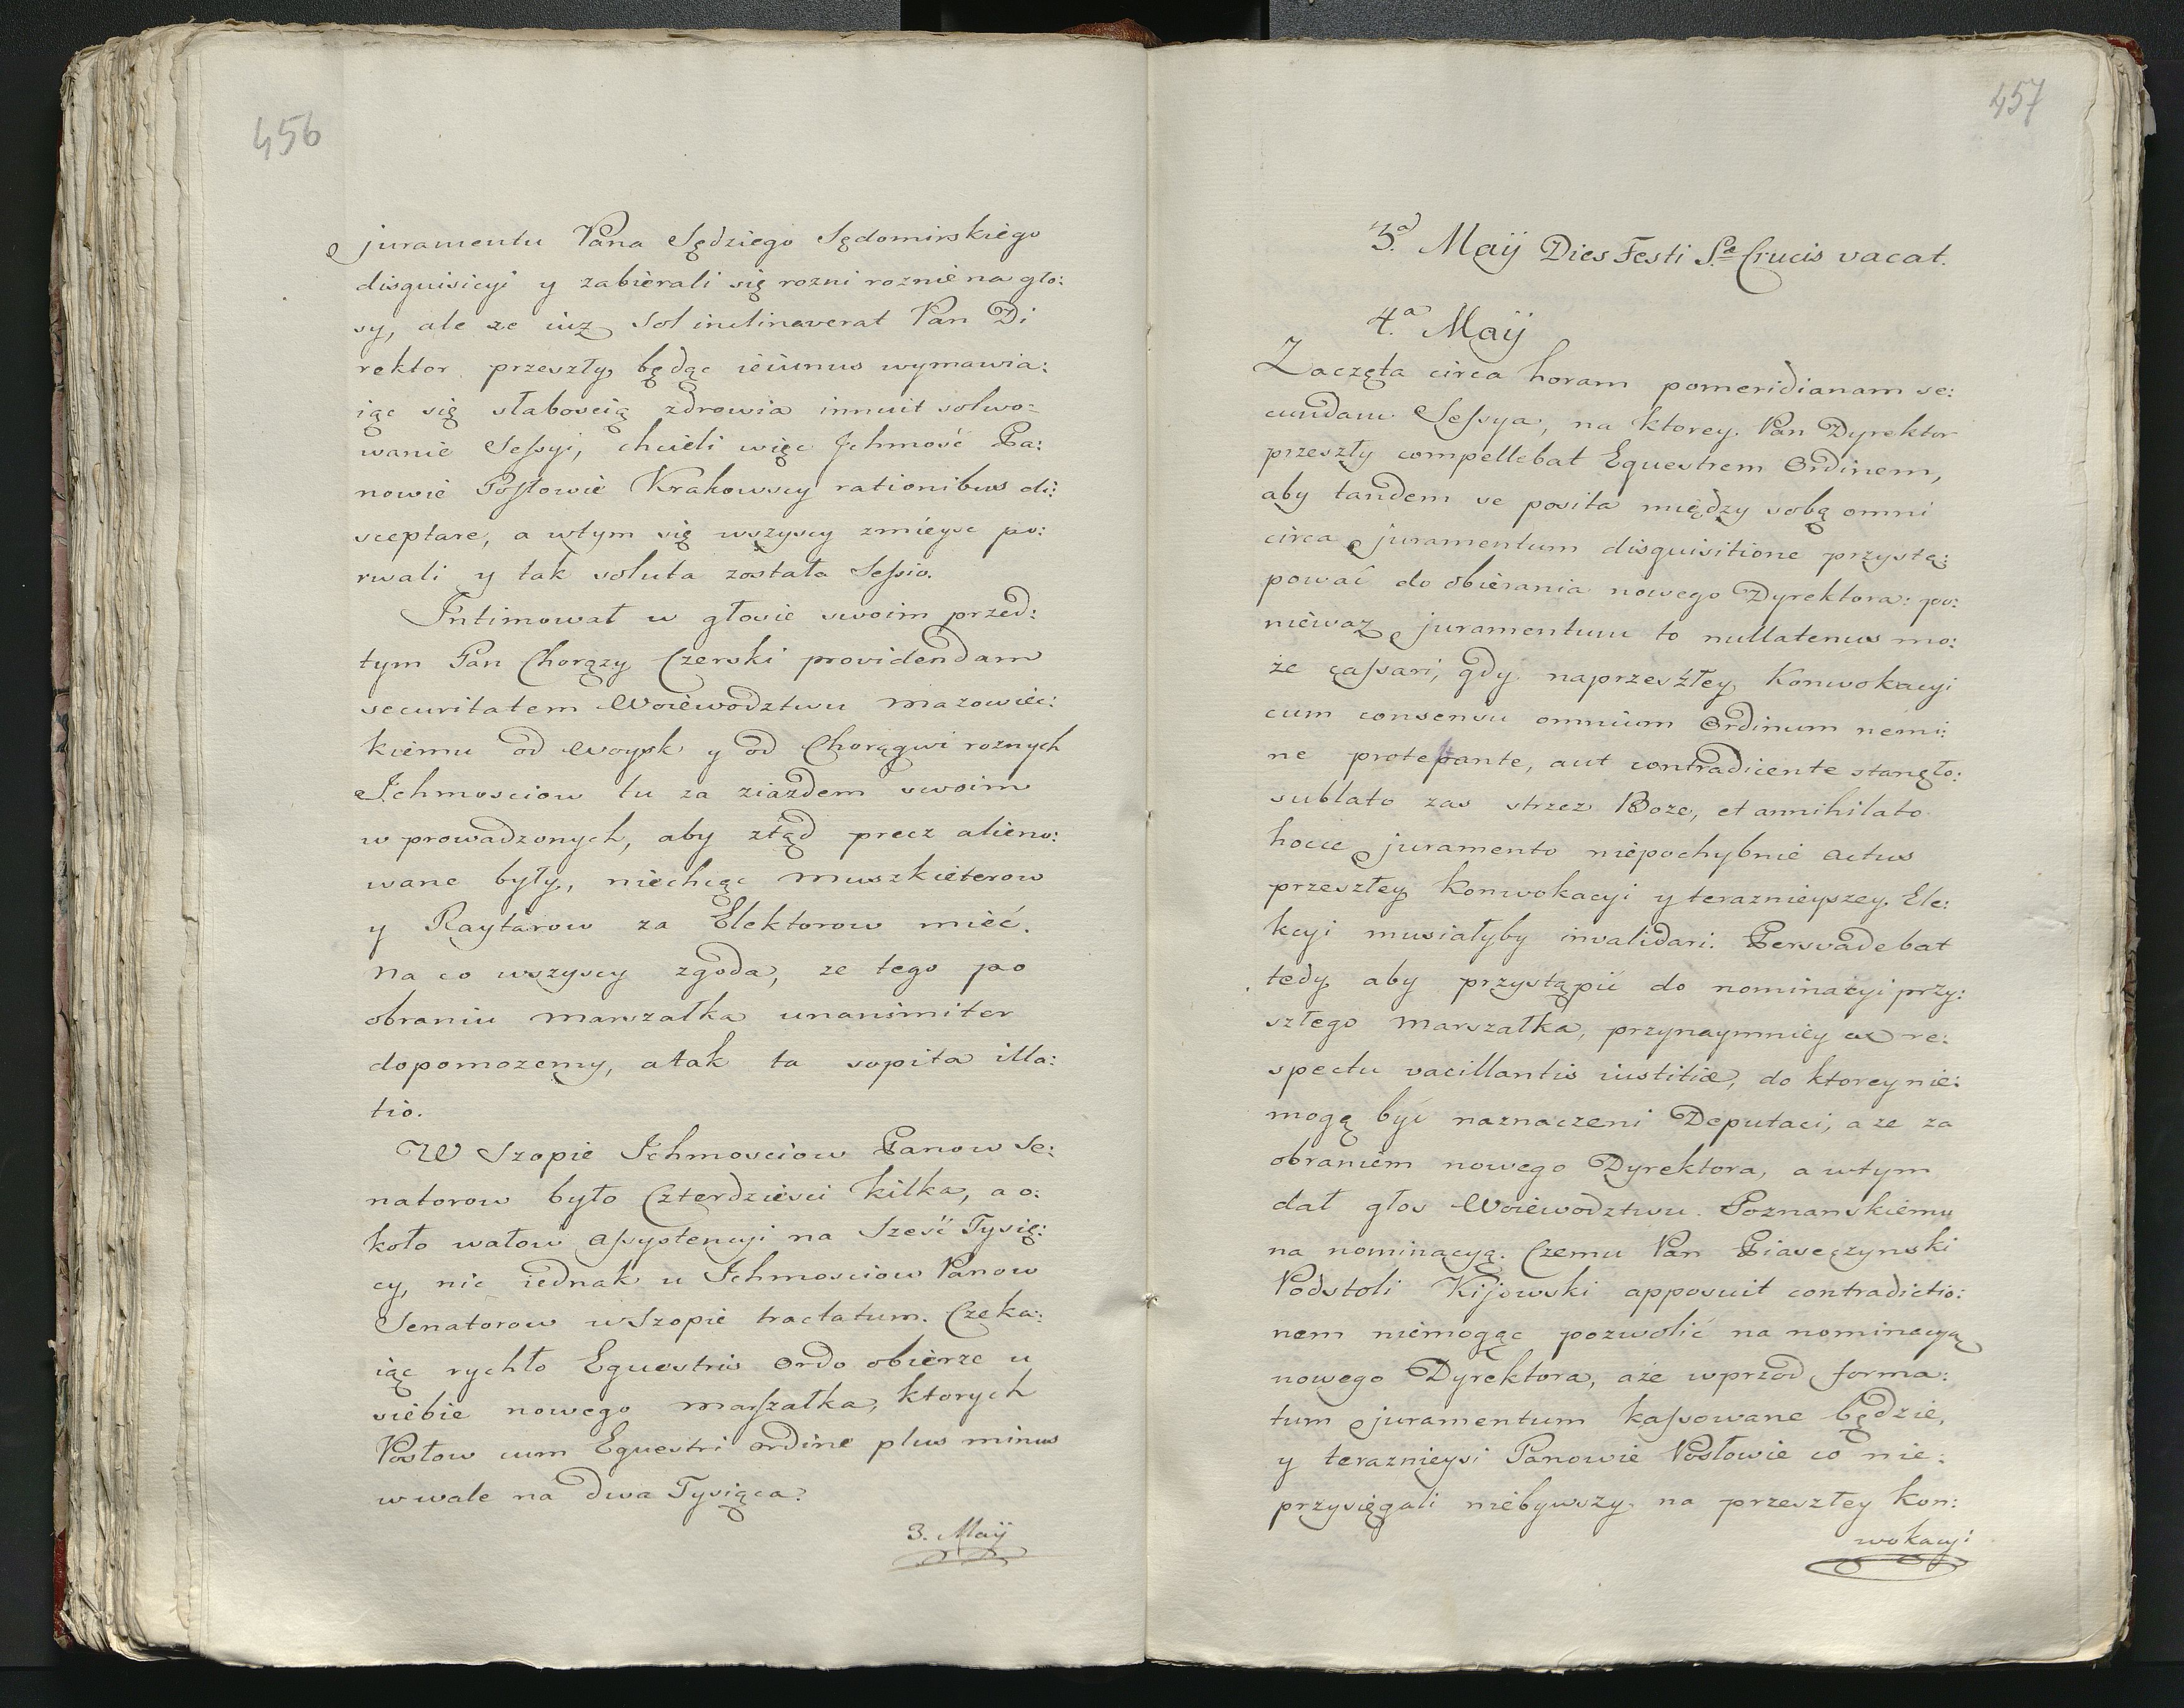 456
juramentu Pana Sędziego Sędomirskiego
disquisicyi y zabierali się rozni roznie na glo:
sy, ale ze iuz sol inclinaverat Pan Di
rektor przeszły, będąc ieiunus wymawia:
iąc się słaboscią zdrowia innuit solwo=
wanie Sessyi, chcieli więc Jchmość Pa:
nowie Posłowie Krakowscy rationibus di:
sceptare, a wtym się wszyscy zmieysc po:
rwali y tak soluta została Sessio.
Intimował w głosie swoim przed:
tym Pan Chorązy Czerski providendam
securitatem Woiewodztwu mazowiec:
kiemu od Woysk y od Chorągwi roznych
Ichmosciow tu za ziazdem swoim
w prowadzonych, aby ztąd precz alieno:
wane były, niechcąc muszkieterow
y Raytarow za Elektorow mieć.
na co wszyscy zgoda, ze tego po
obraniu marszałka unanimiter
dopomozemy, atak ta sopita illa:
tio.
W Szopie Ichmosciow Panow Se:
natorow było Czterdziesci kilka, a o:
koło wałow Assystencyi na Sześć Tysię:
cy, nic iednak u Ichmosciow Panow
Senatorow w Szopie tractatum. Czeka:
iąc rychło Equestris Ordo obierze u
siebie nowego marszałka, ktorych
Posłow cum Equestri ordine plus minus
w wale na dwa Tysiąca.
3. Maij
457
3.a Maij Dies Festi S.æ Crucis vacat.
4.a Maij
Zaczęta circa horam pomeridianam se:
cundam Sessya, na ktorey Pan Dyrektor
przeszły compellebat Equestrem Ordinem,
aby tandem se posita między sobą omni
circa juramentum disquisitione przystą:
pować do obierania nowego Dyrektora: po:
niewaz juramentum to nullatenus mo:
że cassari, gdy naprzeszłey Konwokacyi
cum consensu omnium Ordinum nemi:
ne protestante, aut contradicente stanęło:
sublato zas strzez Boze, et annihilato
hocce juramento niepochybnie actus
przeszłey Konwokacyi y teraznieyszey Ele:
kcyi musiałyby invalidari. Persvadebat
tedy aby przystąpić do nominacyi przy:
szłego marszałka, przynaymniey ex re:
spectu vacillantis iustitiæ, do ktorey nie:
mogą być naznaczeni Deputaci, aze za
obraniem nowego Dyrektora, a wtym
dał głos Woiewodztwu Poznanskiemu
na nominacyą. Czemu Pan Piaseczynski
Podstoli Kijowski apposuit contradictio:
nem niemogąc pozwolić na nominacyą
nowego Dyrektora, aże wprzod forma:
tum juramentum kassowane będzie,
y teraznieysi Panowie Posłowie co nie:
przysięgali niebywszy na przeszłey Kon:
wokacyi